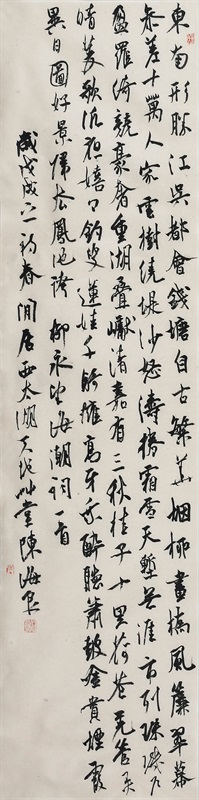 東南形勝江吳都會錢塘自古繁華烟柳畫橋風簾翠幕
參差十萬人家雲樹繞堤沙怒濤捲霜雪天塹無涯市列珠璣戶
盈羅綺競豪奢重湖疊巘清嘉有三秋桂子十里荷花羌管弄
晴菱歌泛夜嬉々釣叟蓮娃千騎擁高牙乘醉聽簫鼓吟賞煙霞
異日圖好景歸去鳳池誇 柳永望海潮詞一首
歲戊戌之初春閒居西太湖草堂陳海良